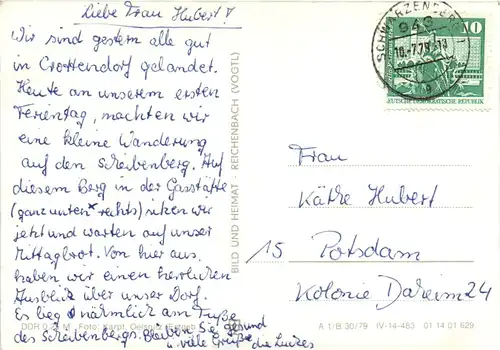 Liebe Frau Hubert!
Wir sind gestern alle gut
in Crottendorf gelandet.
Heute an unserem ersten
Ferientag, machten wir
eine kleine Wanderung
auf den Scheibenberg. Auf
diesem Berg in der Gaststätte
(ganz unten * rechts) sitzen wir
jetzt und warten auf unser
Mittagbrot. Von hier aus
haben wir einen herrlichen
Ausblick über unser Dorf.
Es liegt nämlich am Fuße
des Scheibenbergs. Bleiben Sie gesund
u. viele Grüße die
BILD UND HEIMAT · REICHENBACH (VOGTL)
DDR 0,20 M Foto: Karpf,
SCHWARZENBERG
10
DEUTSCHE DEMOKRATISCHE REPUBLIK
Frau
Käthe Hubert
15 Potsdam
Kolonie Daheim 24
A 1/B 30/79 IV-14-483 01 14 01 629